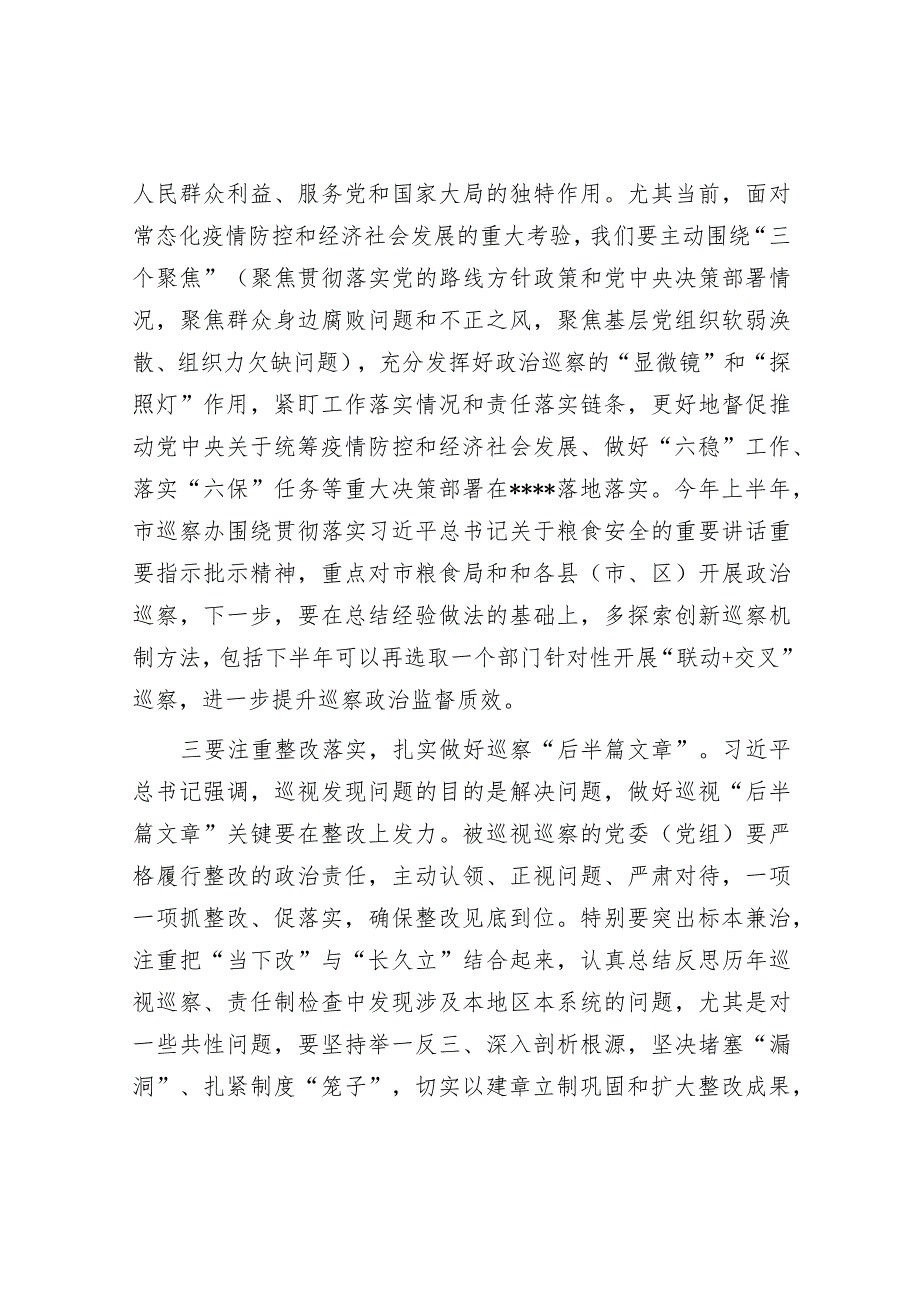 人民群众利益、服务党和国家大局的独特作用。尤其当前，面对
常态化疫情防控和经济社会发展的重大考验，我们要主动围绕“三
个聚焦”（聚焦贯彻落实党的路线方针政策和党中央决策部署情
况，聚焦群众身边腐败问题和不正之风，聚焦基层党组织软弱涣
散、组织力欠缺问题），充分发挥好政治巡察的“显微镜”和“探
照灯”作用，紧盯工作落实情况和责任落实链条，更好地督促推
动党中央关于统筹疫情防控和经济社会发展、做好“六稳”工作、
落实“六保”任务等重大决策部署在****落地落实。今年上半年，
市巡察办围绕贯彻落实习近平总书记关于粮食安全的重要讲话重
要指示批示精神，重点对市粮食局和和各县（市、区）开展政治
巡察，下一步，要在总结经验做法的基础上，多探索创新巡察机
制方法，包括下半年可以再选取一个部门针对性开展“联动+交叉”
巡察，进一步提升巡察政治监督质效。
三要注重整改落实，扎实做好巡察“后半篇文章”。习近平
总书记强调，巡视发现问题的目的是解决问题，做好巡视“后半
篇文章”关键要在整改上发力。被巡视巡察的党委（党组）要严
格履行整改的政治责任，主动认领、正视问题、严肃对待，一项
一项抓整改、促落实，确保整改见底到位。特别要突出标本兼治，
注重把“当下改”与“长久立”结合起来，认真总结反思历年巡
视巡察、责任制检查中发现涉及本地区本系统的问题，尤其是对
一些共性问题，要坚持举一反三、深入剖析根源，坚决堵塞“漏
洞”、扎紧制度“笼子”，切实以建章立制巩固和扩大整改成果，